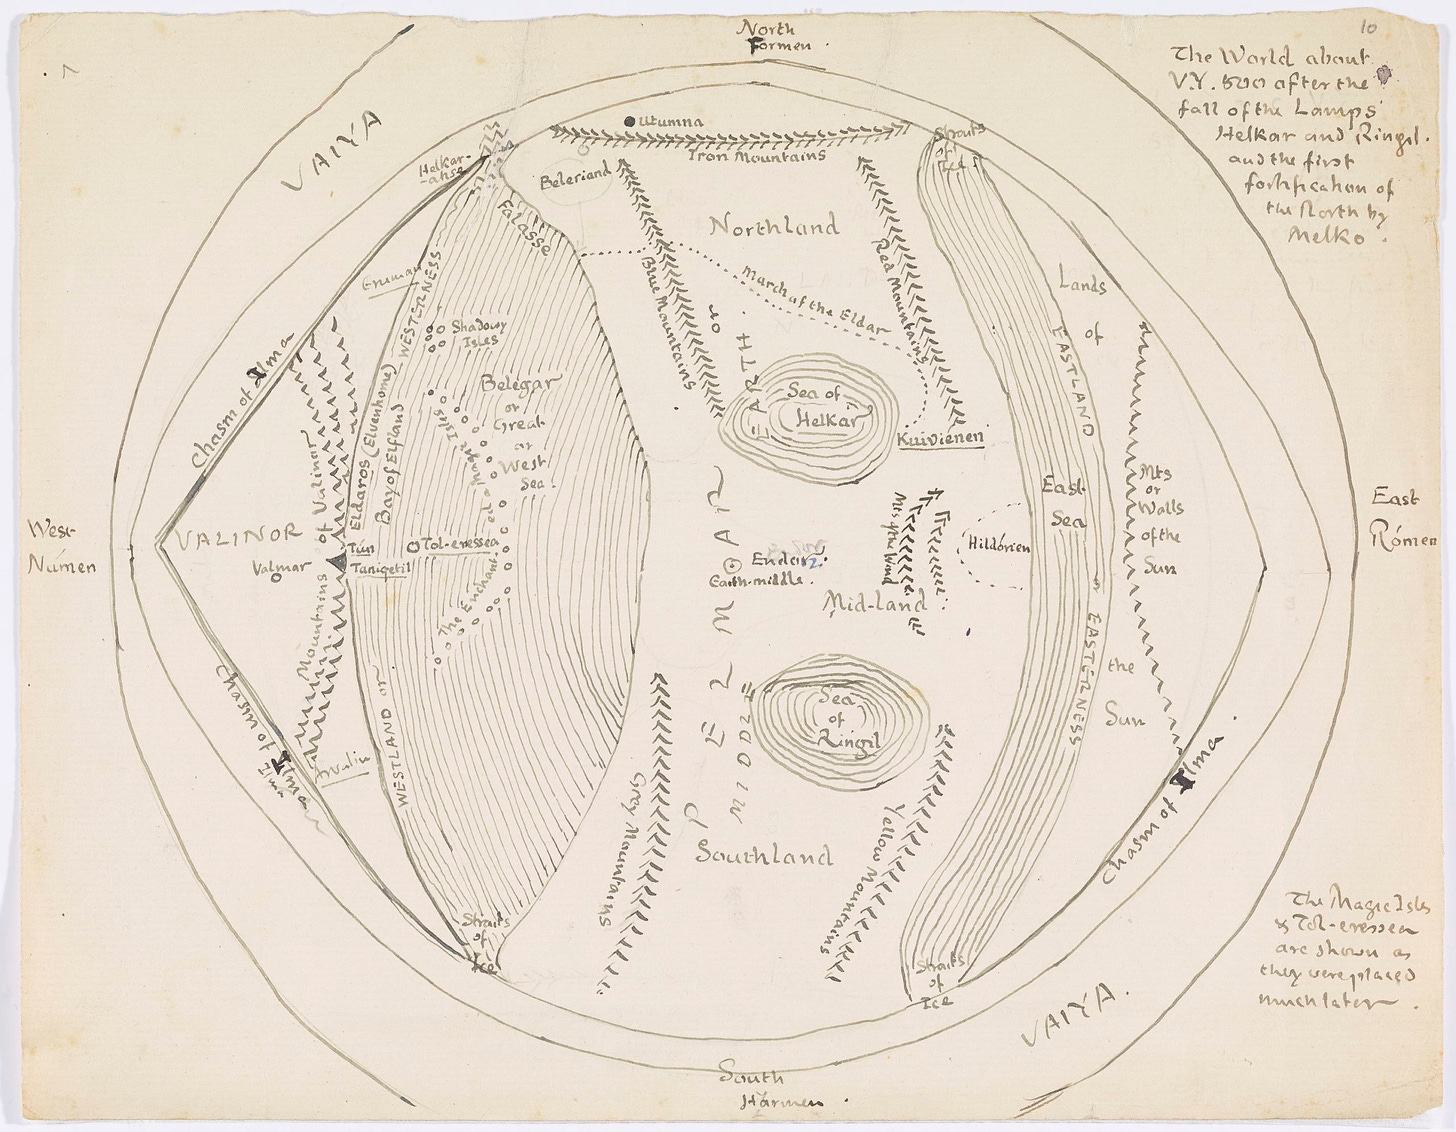 North
Formen .
10
The World about
V.Y. 500 after the
fall of the Lamps
Helkar and Ringil.
and the first
fortification of
the North by
Melko .
VAIYA
Utumna
Iron Mountains
Straits
of
Ice
Helkar-
-akse
Beleriand
Falasse
Northland
Eruman
WESTERNESS
Blue Mountains
Red Mountains
March of the Eldar
Lands
of
the
Sun
EASTLAND
Shadowy
Isles
Belegar
or
Great
or
West
Sea .
Chasm of Ilma
Sea of
Helkar
Kuiviénen
Eldaros (Elvenhome)
Bay of Elfland
or Magic Isles
The Enchant
ed
Mountains of Valinor
East
Sea
Mts
or
Walls
of the
Sun
West
Númen
East
Rómen
VALINOR
Valmar
Tún
Taniqetil
Tol-eressea
Endor
Earth-middle .
Mts of the Wind
Hildórien
Mid-land
MIDDLE
EARTH .
or
EASTERNESS
Chasm of Ilma
Ilma
Avalin
WESTLAND or
Sea
of
Ringil
Gray Mountains
Southland
Yellow Mountains
Chasm of Ilma
Straits
of
Ice
Straits
of
Ice
The Magic Isles
& Tol-eressea
are shown as
they were placed
much later .
VAIYA .
South
Harmen .